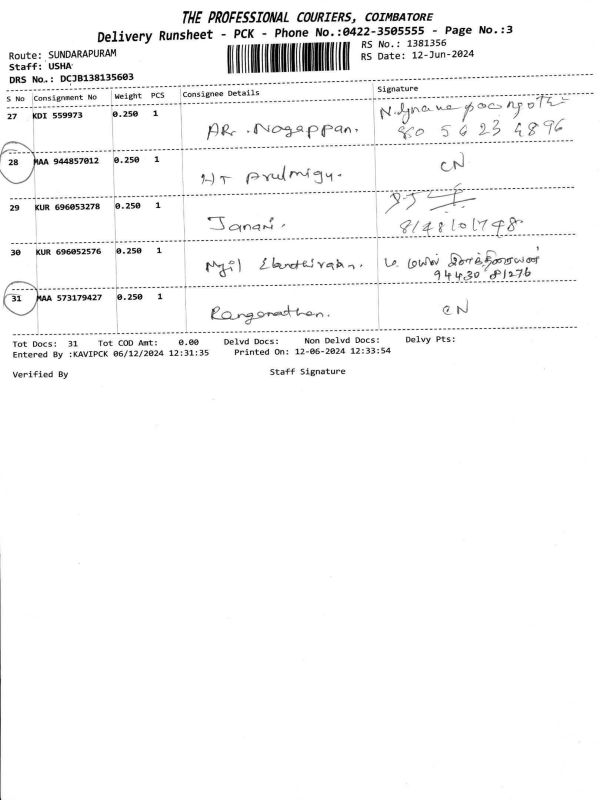 THE PROFESSIONAL COURIERS, COIMBATORE
Delivery Runsheet - PCK - Phone No.:0422-3505555 - Page No.:3
Route: SUNDARAPURAM
RS No.: 1381356
Staff: USHA
RS Date: 12-Jun-2024
DRS No.: DCJB138135603
S No Consignment No Weight PCS Consignee Details Signature
27 KDI 559973 0.250 1 AR. Nagappan.
80 5 6 23 4896
28 MAA 944857012 0.250 1 HT Arulmigu. CN
29 KUR 696053278 0.250 1 Janani.
8148101748
30 KUR 696052576 0.250 1
94430 81276
31 MAA 573179427 0.250 1 Ranganathan. CN
Tot Docs: 31 Tot COD Amt: 0.00 Delvd Docs: Non Delvd Docs: Delvy Pts:
Entered By :KAVIPCK 06/12/2024 12:31:35 Printed On: 12-06-2024 12:33:54
Verified By Staff Signature